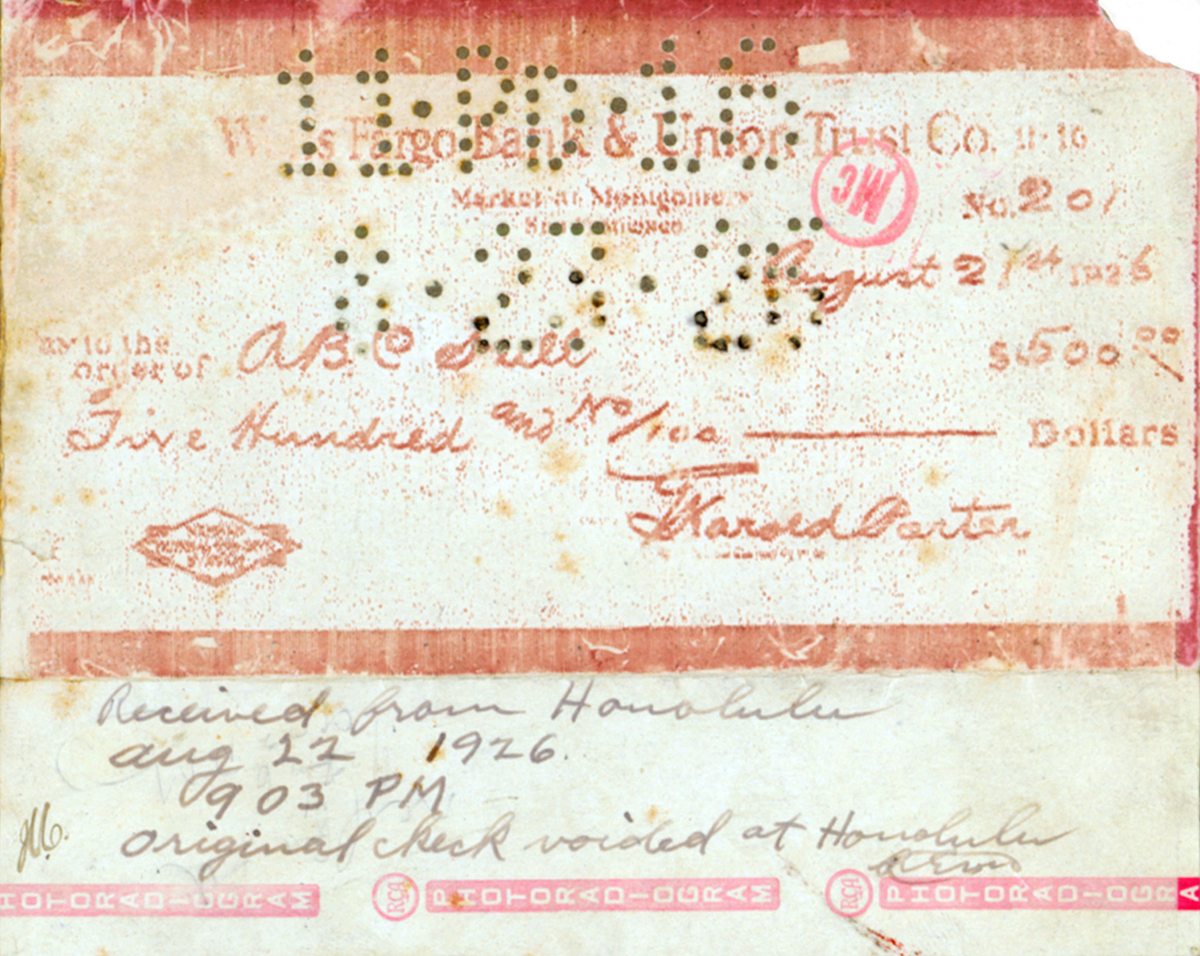 Wells Fargo Bank & Union Trust Co. 11-16
Market at Montgomery
San Francisco
No. 201
August 21st 1926
Pay to the
order of A B C Suit
$500.00
Five Hundred and No/100 Dollars
Received from Honolulu
Aug 22 1926.
9 03 PM
Original check voided at Honolulu
JM.
PHOTORADIOGRAM RCA PHOTORADIOGRAM RCA PHOTORADIOGRAM
MC